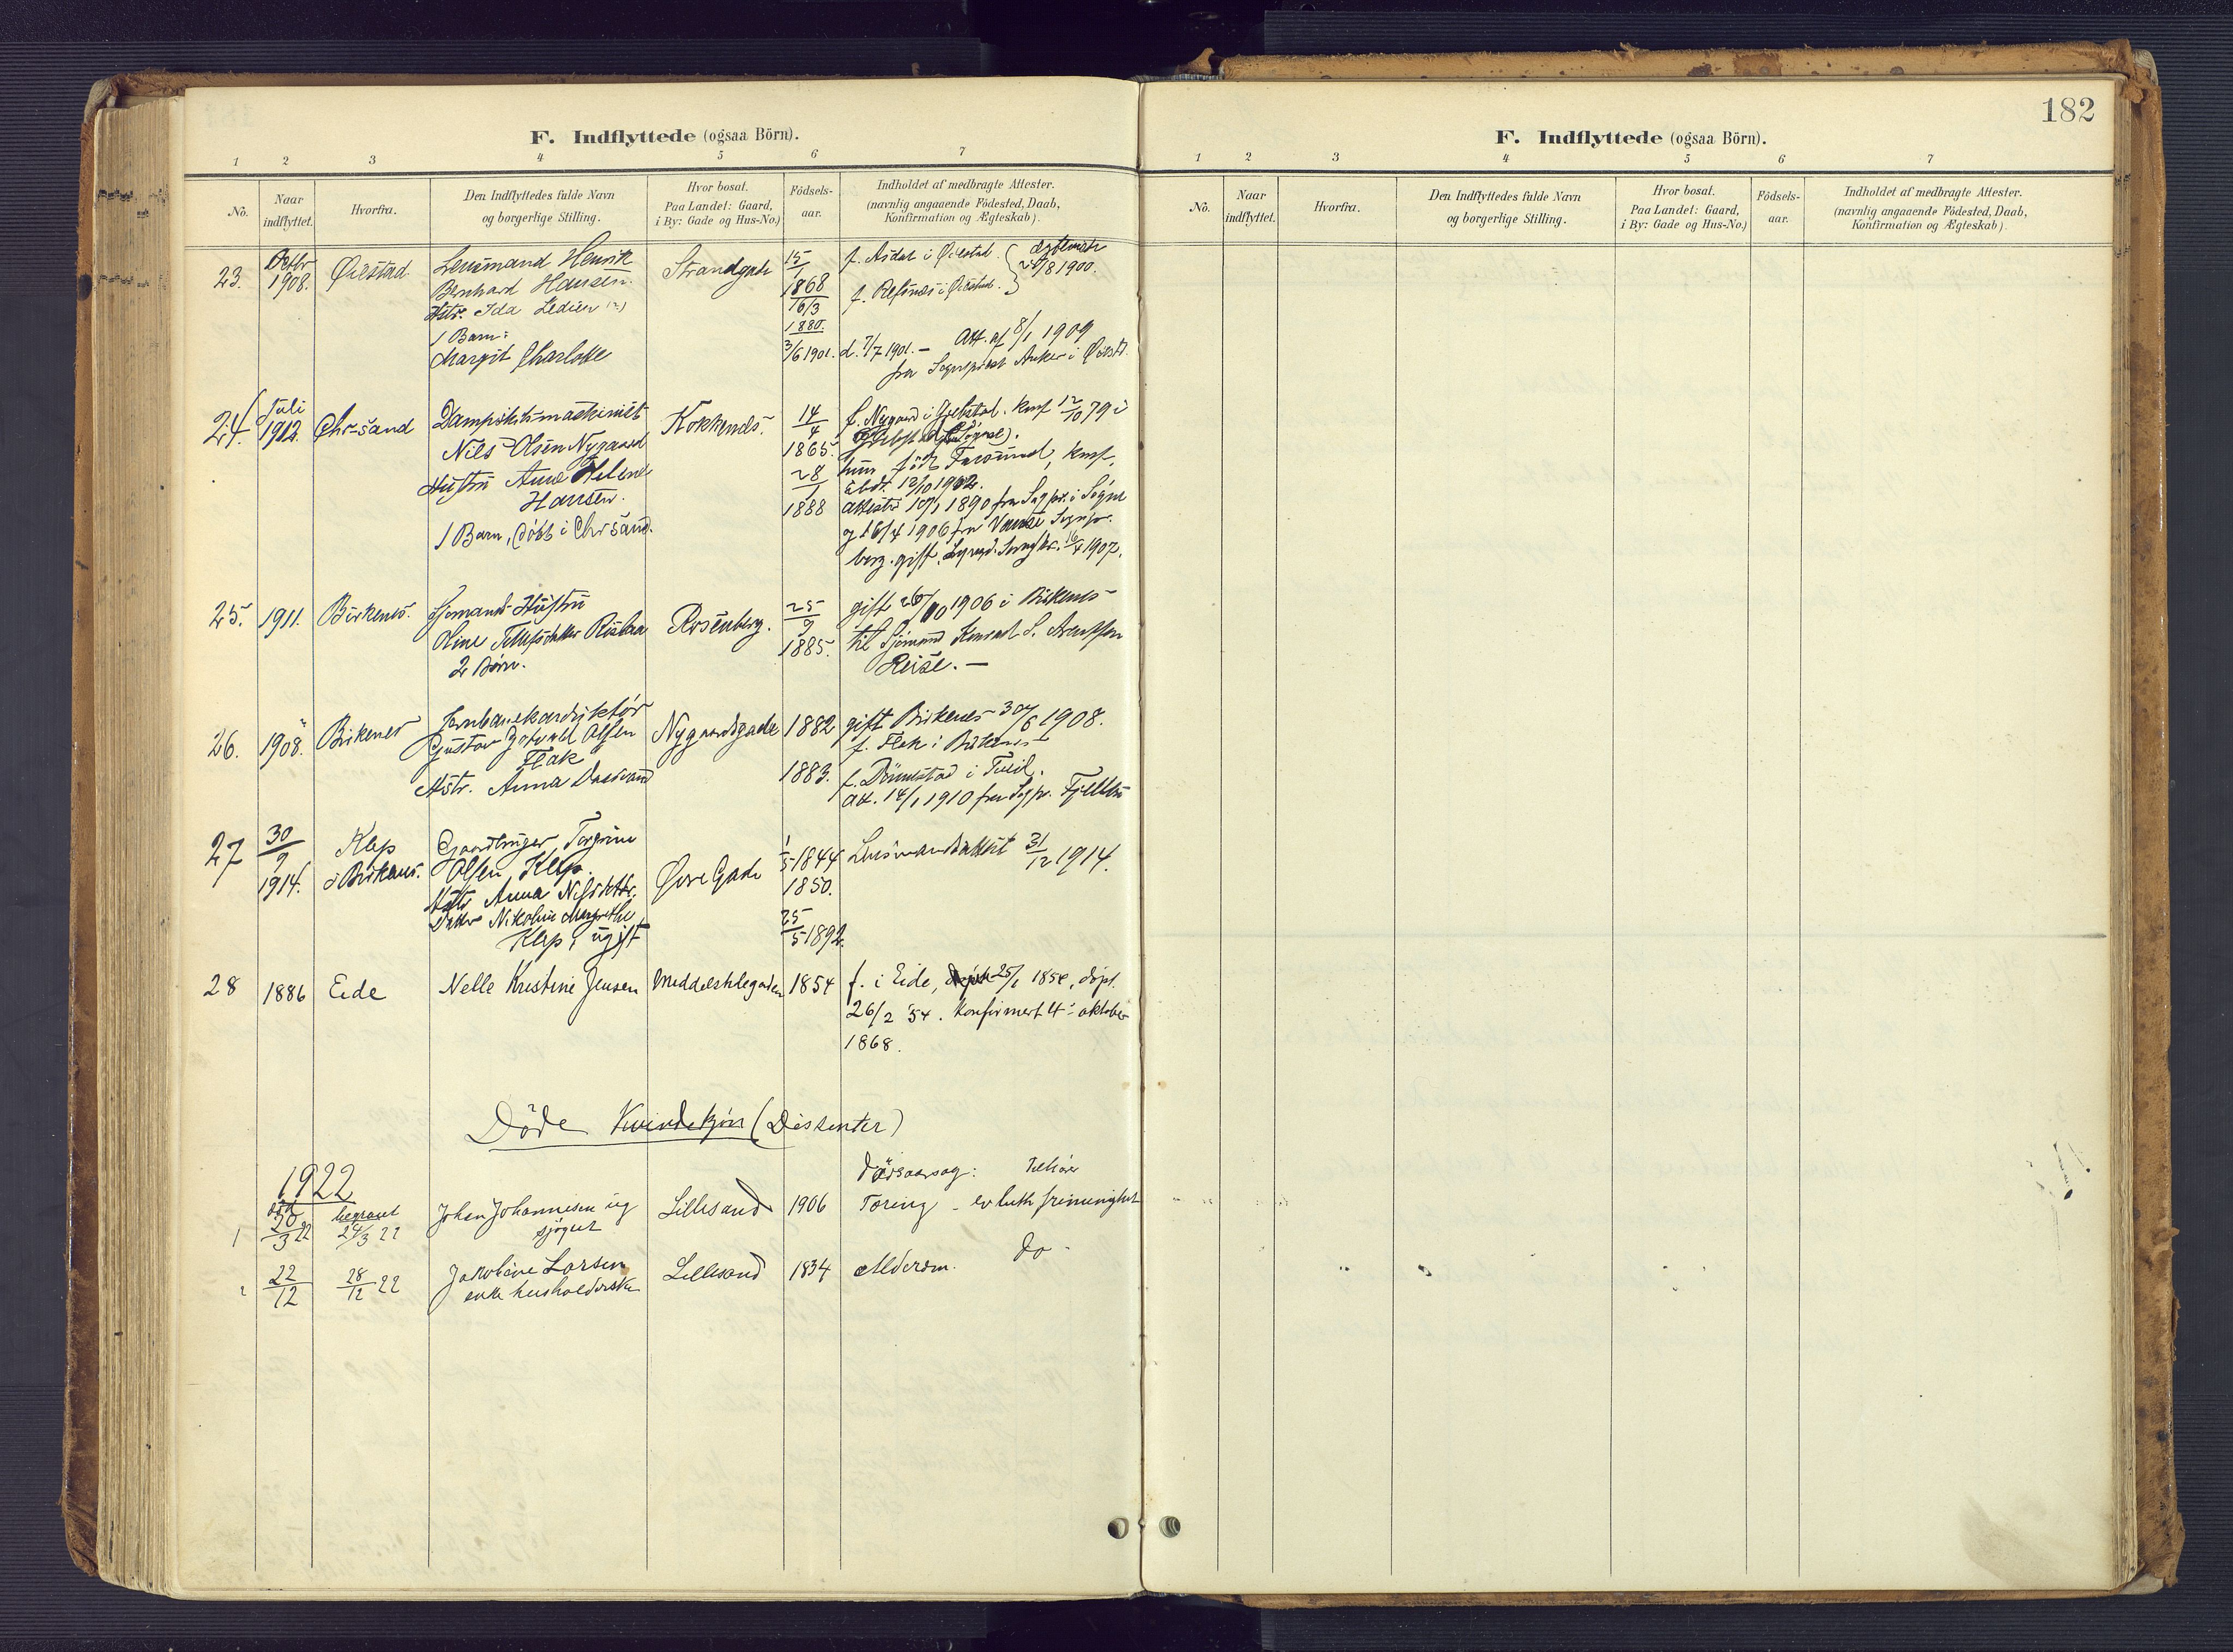 F. Indflyttede (ogsaa Börn).
1 2 3 4 5 6 7
No.
Naar
indflyttet.
Hvorfra.
Den Indflyttedes fulde Navn
og borgerlige Stilling.
Hvor bosat.
Paa Landet: Gaard,
i By: Gade og Hus-No.)
Födsels-
aar.
Indholdet af medbragte Attester.
(navnlig angaaende Födested, Daab,
Konfirmation og Ægteskab).
23.
Oktbr
1908.
Øiestad
Lensmand Henrik
Bernhard Hansen.
Hstr. Ida
1 Barn:
Margit Charlotte
Strandgade
15/1
1868
16/3
1880.
3/6 1901.
f. i Øiestad.
f. Refsnes i Øiestad.
8 1900.
d. 7/7 1901. — Att. af 8/1 1909
fra Sogneprest Anker i Øiest.
24.
Juli
1912.
Chr-sand
Dampskibsmaskinist
Nils Olsen Nygaard
Hustru Anna Helene
Hansen.
1 Barn, døbt i Chrsand.
Kokkenes.
14/4
1865.
28/1
1888
f. Nygaard i Konf 12/10 79 i
hun født Farsund, konf.
12/10 1902.
1890 fra Sogpr. i Søgne
og 16/4 1906 fra Vanse Sognepr.
borg. gift 16/4 1907.
25.
1911.
Birkenes.
Sjømands Hustru
Line
2 Børn.
Rosenberg.
25/9
1885.
gift 26/10 1906 i Birkenes
til Sjømand Konrad S.
Reise. —
26.
1908.
Birkenes
Jernbanekonduktør
Gustav Olsen
Flak
Hstr. Anna
Nygaardsgade
1882
1883.
gift Birkenes 30/6 1908.
f. Flak i Birkenes
f. i
att. 14/1 1910 fra Sogpr.
27
30/9
1914.
Klep
i Birkenes.
Gaardbruger Torgrim
Olsen Klep.
Hstr Anna Nilsdtr.
Datter Nikoline Margrethe
Klep, ugift
Øvre Gade
1/5 1844
1850.
25/5 1892.
Lensmandsattest 31/12 1914.
28
1886
Eide
Nelle Kristine Jensen
Meddelskolegaden
1854
f. i Eide, 25/1 1854, døpt
26/2 54. Konfirmert 4de oktober
1868.
Döde Kvindekjøn (Dissenter)
1922
Dødsaarsag: Tilhører
1
død
20/3 22
begravet
24/3 22
Johan Johannesen ug
sjøgut
Lillesand
1906
Tæring - ev luth frimenighet
2
22/12
28/12 22
Jakobine Larsen
enke husholderske
Lillesand
1834
Alderdom.
do -
182
F. Indflyttede (ogsaa Börn).
1 2 3 4 5 6 7
No.
Naar
indflyttet.
Hvorfra.
Den Indflyttedes fulde Navn
og borgerlige Stilling.
Hvor bosat.
Paa Landet: Gaard,
i By: Gade og Hus-No.)
Födsels-
aar.
Indholdet af medbragte Attester.
(navnlig angaaende Födested, Daab,
Konfirmation og Ægteskab).